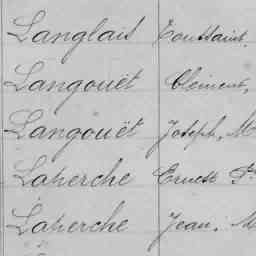 Langlais Toussaint,
Langouët Clément,
Langouët Joseph, M
Laperche Ernest P
Laperche Jean, M